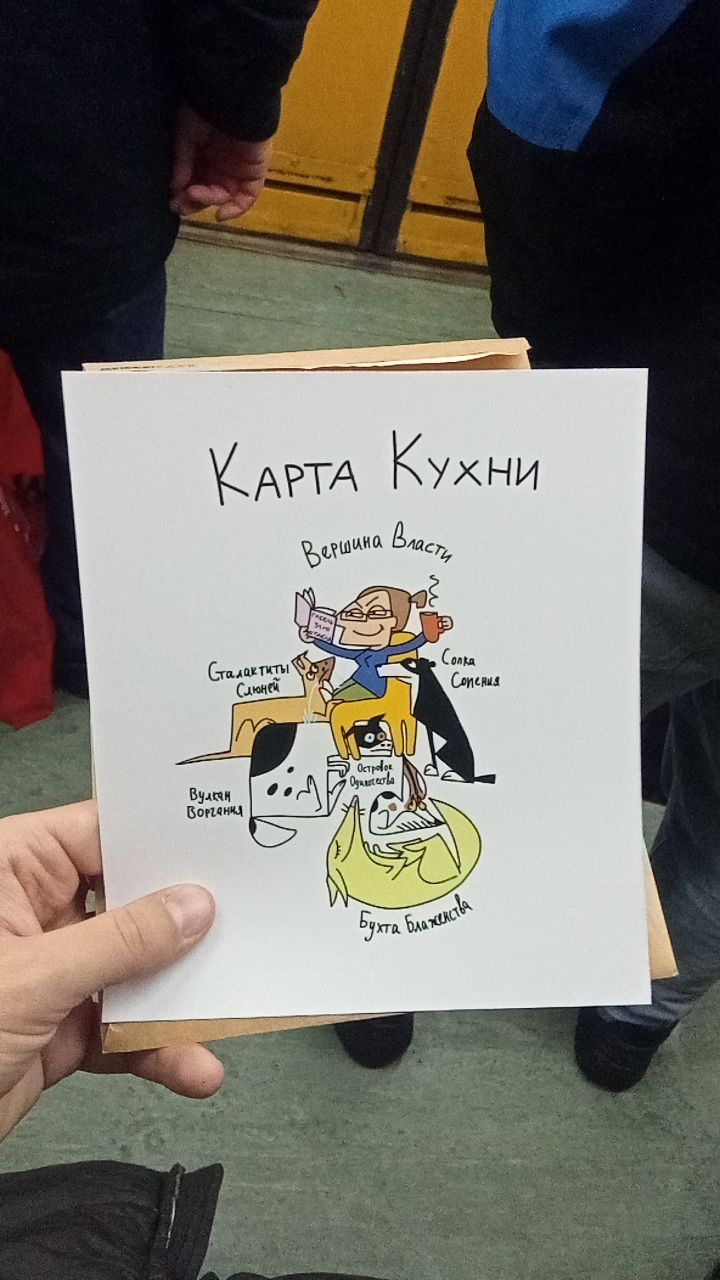 Карта Кухни
Вершина Власти
Сталактиты
Слюней
Сопка
Сопения
Островок
Одиночества
Вулкан
Ворчания
Бухта Блаженства